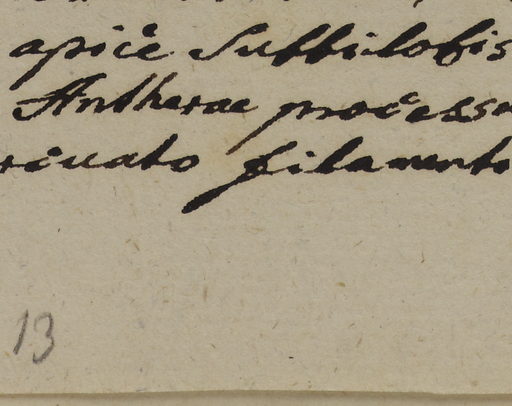 apice subbilobis
Antherae processu
rcuato filamento
13